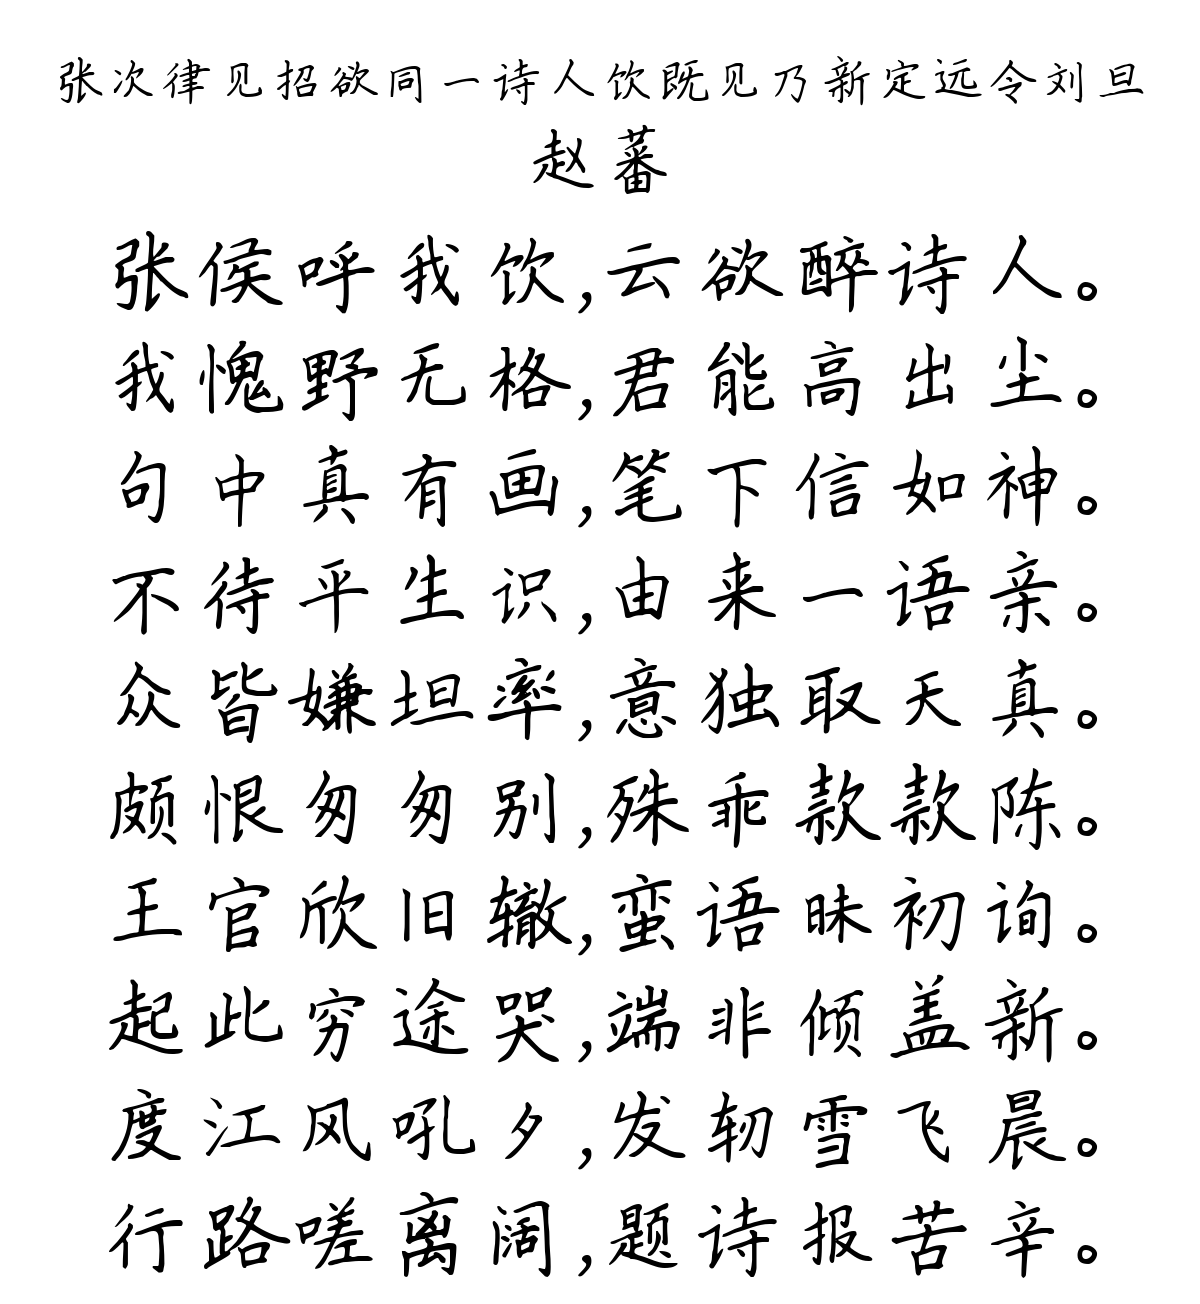 张次律见招欲同一诗人饮既见乃新定远令刘旦
赵蕃
张侯呼我饮,云欲醉诗人。
我愧野无格,君能高出尘。
句中真有画,笔下信如神。
不待平生识,由来一语亲。
众皆嫌坦率,意独取天真。
颇恨匆匆别,殊乖款款陈。
王官欣旧辙,蛮语昧初询。
起此穷途哭,端非倾盖新。
度江风吼夕,发轫雪飞晨。
行路嗟离阔,题诗报苦辛。